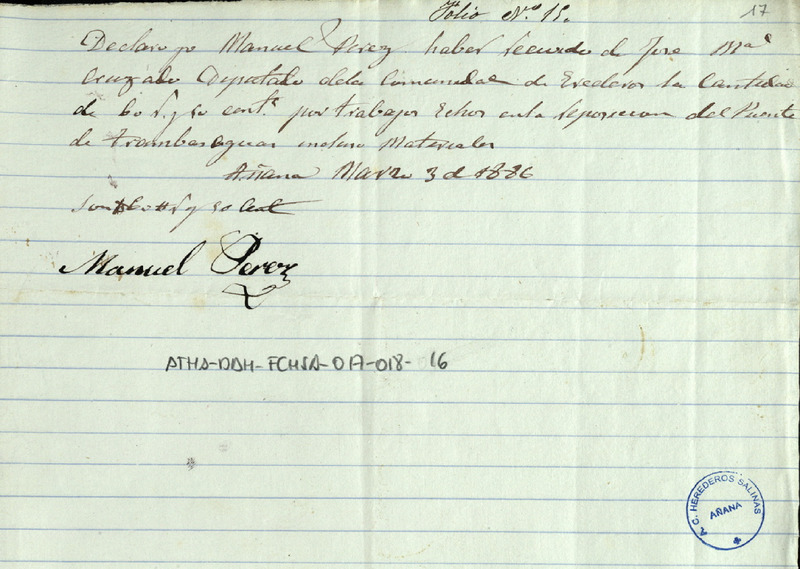 Folio Nº 15.
17
Declaro yo Manuel Perez haber recivido de Jose Mª
Cruzado Diputado dela Comunidad de Erederos la Cantidad
de 60 r. y 50 cent.s por trabajos Echos en la reposicion del Puente
de trambasaguas incluso Materiales
Añana Marzo 3 d 1886
Son # 60 # r y 50 cent
Manuel Perez
ATHA-DAH-FCHSA-017-018- 16
A. C. HEREDEROS SALINAS
AÑANA